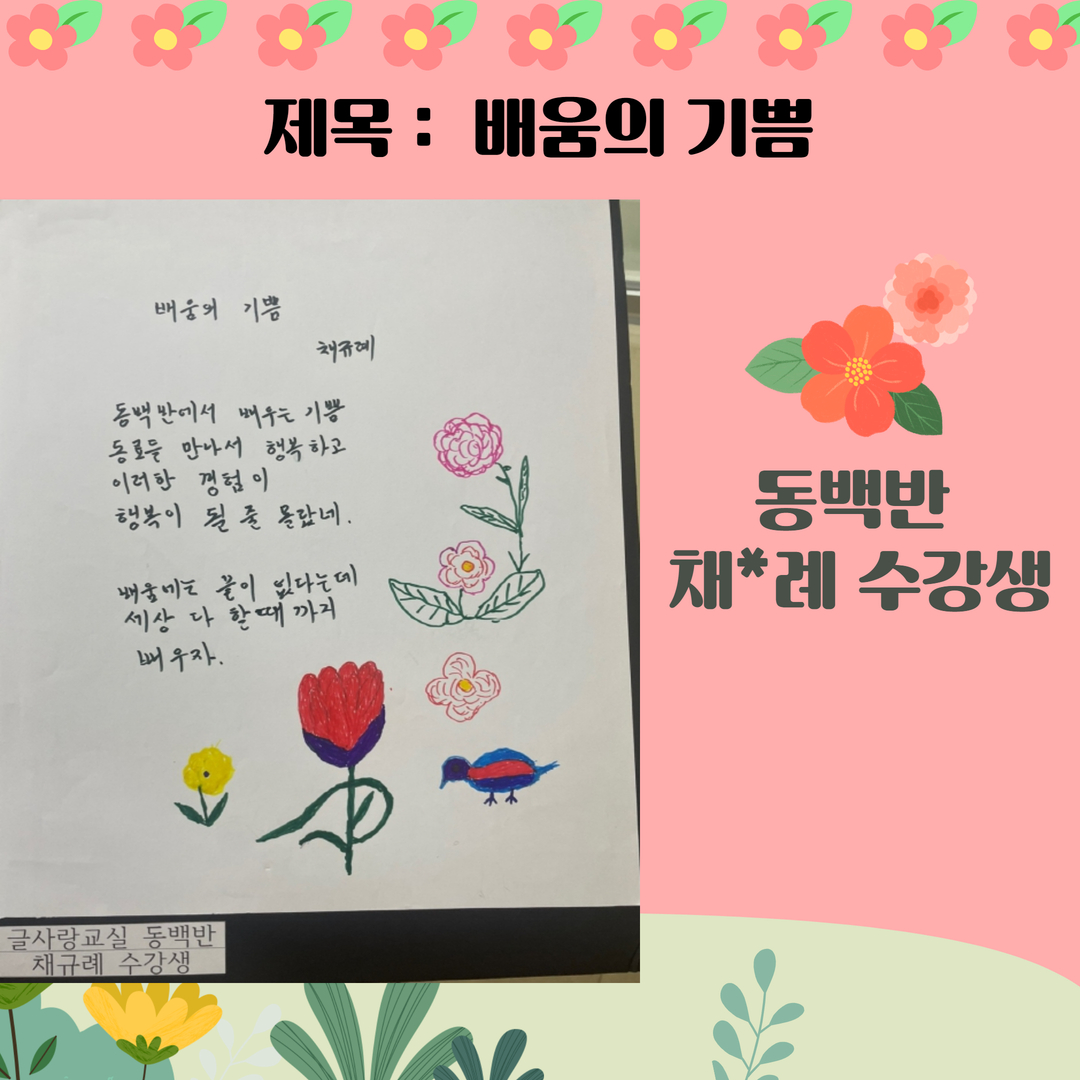 제목 : 배움의 기쁨
배움의 기쁨
채규례
동백반에서 배우는 기쁨
동료들 만나서 행복하고
이러한 경험이
행복이 될 줄 몰랐네.
배움에는 끝이 없다는데
세상 다 할때 까지
배우자.
글사랑교실 동백반
채규례 수강생
동백반
채*례 수강생